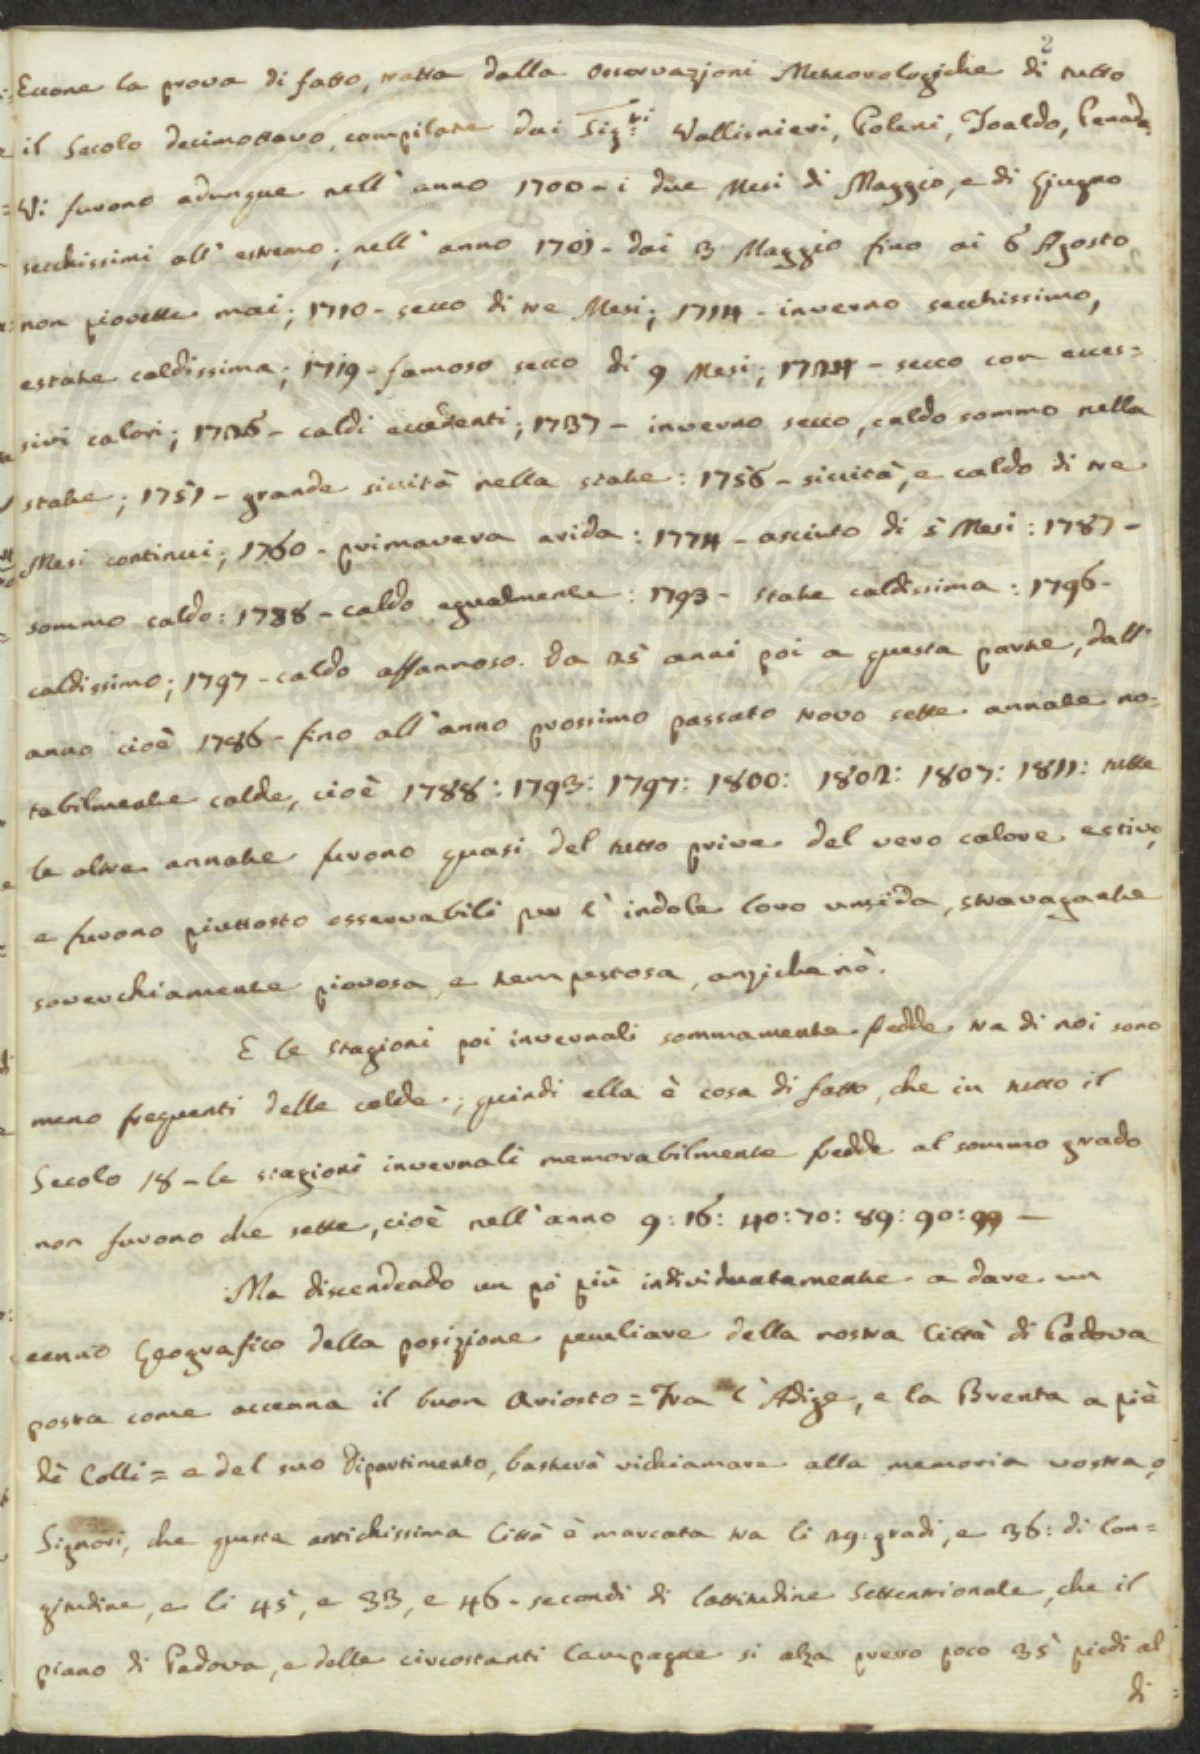 2
Eccone la prova di fatto, tratta dalla Osservazioni Meteorologiche di tutto
il Secolo decimottavo, compilate dai Sig.ri Vallisnieri, Poleni, Toaldo, Penada
Vi furono adunque nell' anno 1700 - i due Mesi di Maggio, e di Giugno
secchissimi all' estremo; nell' anno 1701 - dai 3 Maggio fino ai 6 Agosto
non piovette mai; 1710 - secco di tre Mesi; 1714 - inverno secchissimo,
estate caldissima; 1719 - famoso secco di 9 Mesi; 1724 - secco con ecces=
sivi calori; 1726 - caldi eccedenti; 1737 - inverno secco, caldo sommo nella
state; 1751 - grande siccità nella state: 1756 - siccità, e caldo di tre
Mesi continui; 1760 - primavera arida: 1774 - asciuto di 5 Mesi: 1787 -
sommo caldo: 1788 - caldo egualmente: 1793 - state caldissima: 1796 -
caldissimo; 1797 - caldo affannoso. Da 25 anni poi a questa parte, dall'
anno cioè 1786 - fino all' anno prossimo passato trovo sette annate no=
tabilmente calde, cioè 1788: 1793: 1797: 1800: 1802: 1807: 1811: tutte
le altre annate furono quasi del tutto prive del vero calore estivo,
e furono piuttosto osservabili per l' indole loro umida, stravagante
soverchiamente piovosa, e tempestosa, anziche nò.
E le stagioni poi invernali sommamente fredde tra di noi sono
meno frequenti delle calde; quindi ella è cosa di fatto, che in tutto il
Secolo 18 - le stagioni invernali memorabilmente fredde al sommo grado
non furono che sette, cioè nell' anno 9: 16: 40: 70: 89: 90: 99 -
Ma discendendo un pò più individuatamente a dare un
cenno Geografico della posizione peculiare della nostra Città di Padova
posta come accenna il buon Ariosto = Tra l' Adige, e la Brenta a piè
dè Colli = e del suo Dipartimento, basterà richiamare alla memoria vostra, o
Signori, che questa antichissima Città è marcata tra li 29: gradi, e 36: di lon=
gitudine, e li 45, e 33, e 46 - secondi di lattitudine Settentrionale, che il
piano di Padova, e delle circostanti Campagne si alza presso poco 35 piedi al
di